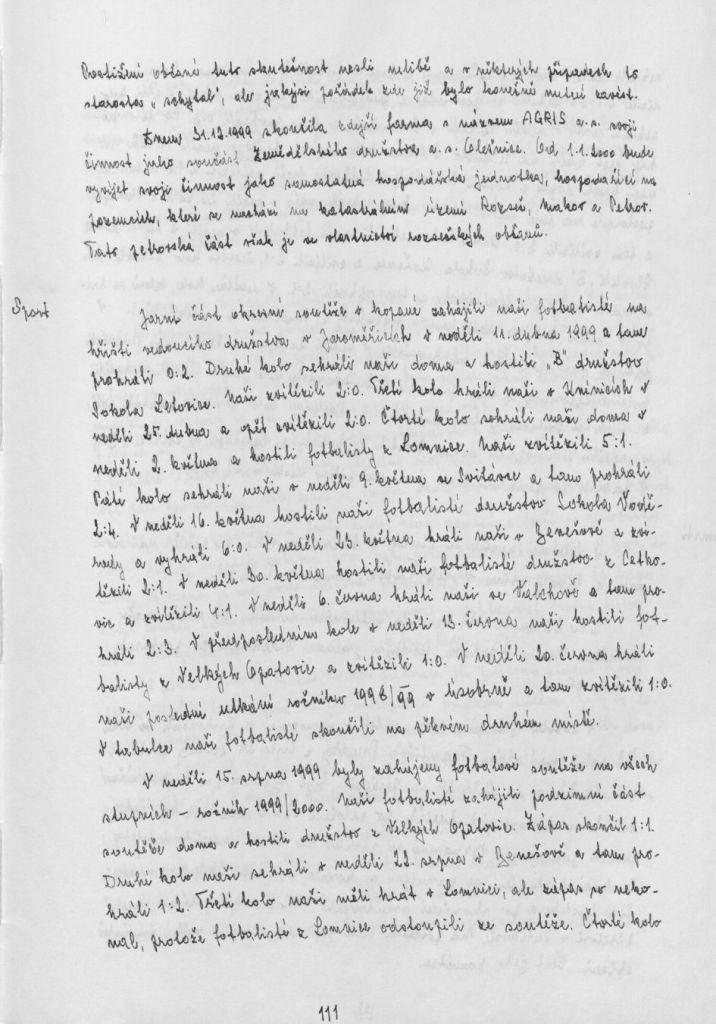 Postižení občané tuto skutečnost nesli nelibě a v některých případech to
starosta „schytal", ale jakýsi pořádek zde již bylo konečně nutné zavést.
Dnem 31.12.1999 skončila zdejší farma s názvem AGRIS a.s. svoji
činnost jako součást Zemědělského družstva a.s. Olešnice. Od 1.1.2000 bude
vyvíjet svoji činnost jako samostatná hospodářská jednotka, hospodařící na
pozemcích, které se nachází na katastrálním území Rozseč, Makov a Petrov.
Tato petrovská část však je ve vlastnictví rozsečských občanů.
Sport
Jarní část okresní soutěže v kopané zahájili naši fotbalisté na
hřišti vedoucího družstva v Jaroměřicích v neděli 11. dubna 1999 a tam
prohráli 0:2. Druhé kolo sehráli naši doma a hostili „B" družstvo
Sokola Letovice. Naši zvítězili 2:0. Třetí kolo hráli naši v Knínicích v
neděli 25. dubna a opět zvítězili 2:0. Čtvrté kolo sehráli naši doma v
neděli 2. května a hostili fotbalisty z Lomnice. Naši zvítězili 5:1.
Páté kolo sehráli naši v neděli 9. května ve Svitávce a tam prohráli
2:4. V neděli 16. května hostili naši fotbalisté družstvo Sokola Voděrady
a vyhráli 6:0. V neděli 23. května hráli naši v Benešově a zvítězili
2:1. V neděli 30. května hostili naši fotbalisté družstvo z Cetkovic
a zvítězili 4:1. V neděli 6. června hráli naši ve Valchově a tam prohráli
2:3. V předposledním kole v neděli 13. června naši hostili fotbalisty
z Velkých Opatovic a zvítězili 1:0. V neděli 20. června hráli
naši poslední utkání ročníku 1998/99 v Úsobrně a tam zvítězili 1:0.
V tabulce naši fotbalisté skončili na pěkném druhém místě.
V neděli 15. srpna 1999 byly zahájeny fotbalové soutěže na všech
stupních – ročník 1999/2000. Naši fotbalisté zahájili podzimní část
soutěže doma a hostili družstvo z Velkých Opatovic. Zápas skončil 1:1.
Druhé kolo naši sehráli v neděli 22. srpna v Benešově a tam prohráli
1:2. Třetí kolo naši měli hrát v Lomnici, ale zápas se nekonal,
protože fotbalisté z Lomnice odstoupili ze soutěže. Čtvrté kolo
111